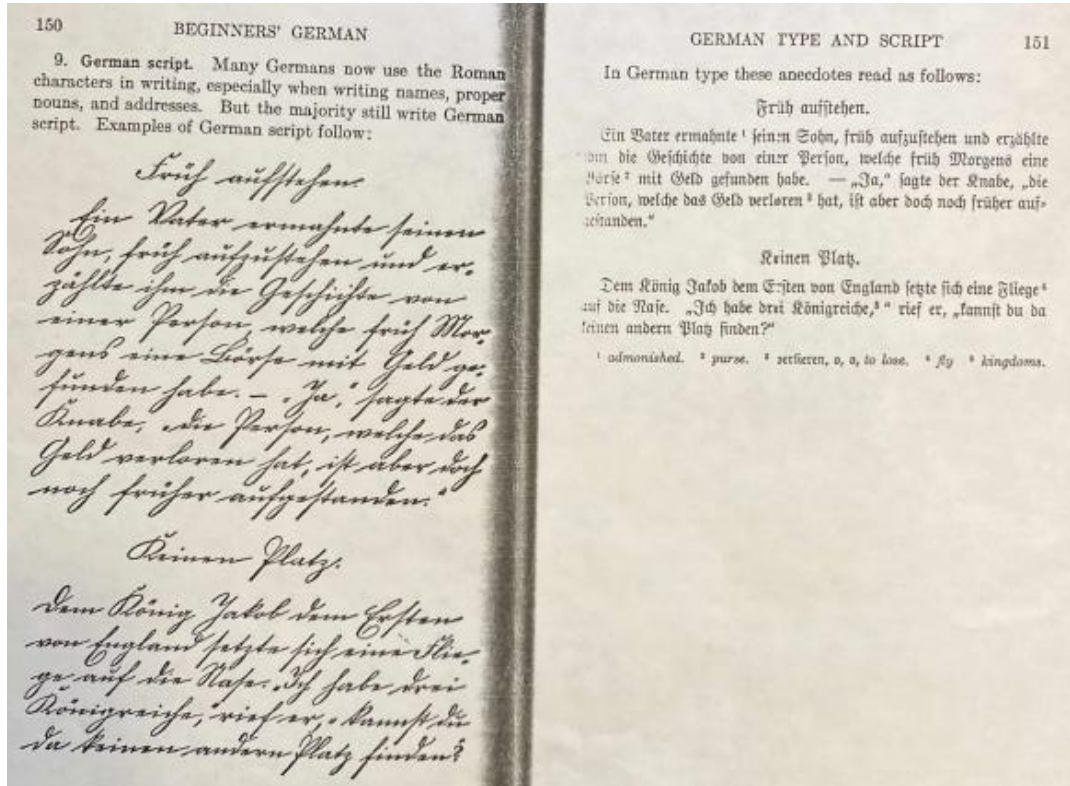 150
BEGINNERS' GERMAN
9. German script. Many Germans now use the Roman
characters in writing, especially when writing names, proper
nouns, and addresses. But the majority still write German
script. Examples of German script follow:
Früh aufstehen.
Ein Vater ermahnte seinen
Sohn, früh aufzustehen und er-
zählte ihm die Geschichte von
einer Person, welche früh Mor-
gens eine Börse mit Geld ge-
funden habe. — „Ja,“ sagte der
Knabe, „die Person, welche das
Geld verloren hat, ist aber doch
noch früher aufgestanden.“
Keinen Platz.
Dem König Jakob dem Ersten
von England setzte sich eine Flie-
ge auf die Nase. „Ich habe drei
Königreiche,“ rief er, „kannst du
da keinen andern Platz finden?“
GERMAN TYPE AND SCRIPT
151
In German type these anecdotes read as follows:
Früh aufstehen.
Ein Vater ermahnte ¹ seinen Sohn, früh aufzustehen und erzählte
ihm die Geschichte von einer Person, welche früh Morgens eine
Börse ² mit Geld gefunden habe. — „Ja,“ sagte der Knabe, „die
Person, welche das Geld verloren ³ hat, ist aber doch noch früher auf-
gestanden.“
Keinen Platz.
Dem König Jakob dem Ersten von England setzte sich eine Fliege ⁴
auf die Nase. „Ich habe drei Königreiche,⁵“ rief er, „kannst du da
keinen andern Platz finden?“
¹ admonished. ² purse. ³ verlieren, o, o, to lose. ⁴ fly ⁵ kingdoms.